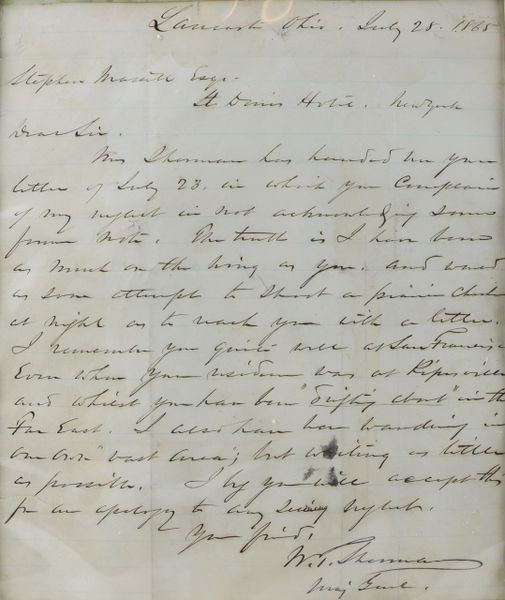 Lancaster Ohio. July 28. 1865
Stephen Massett Esqr.
St Denis Hotel. New York
Dear Sir.
Mrs Sherman has handed me your
letter of July 23. in which you complain
of my neglect in not acknowledging some
former note. The truth is I have been
as much on the wing as you. and would
as soon attempt to shoot a prairie chicken
at night as to reach you with a letter.
I remember you quite well at San Francisco
Even when your residence was at
and whilst you have been "drifting about" in the
Far East. I also have been wandering in
our own "vast area"; but writing as little
as possible. I beg you will accept this
for an apology to any seeming neglect.
Your friend,
W. T. Sherman
Maj Genl.